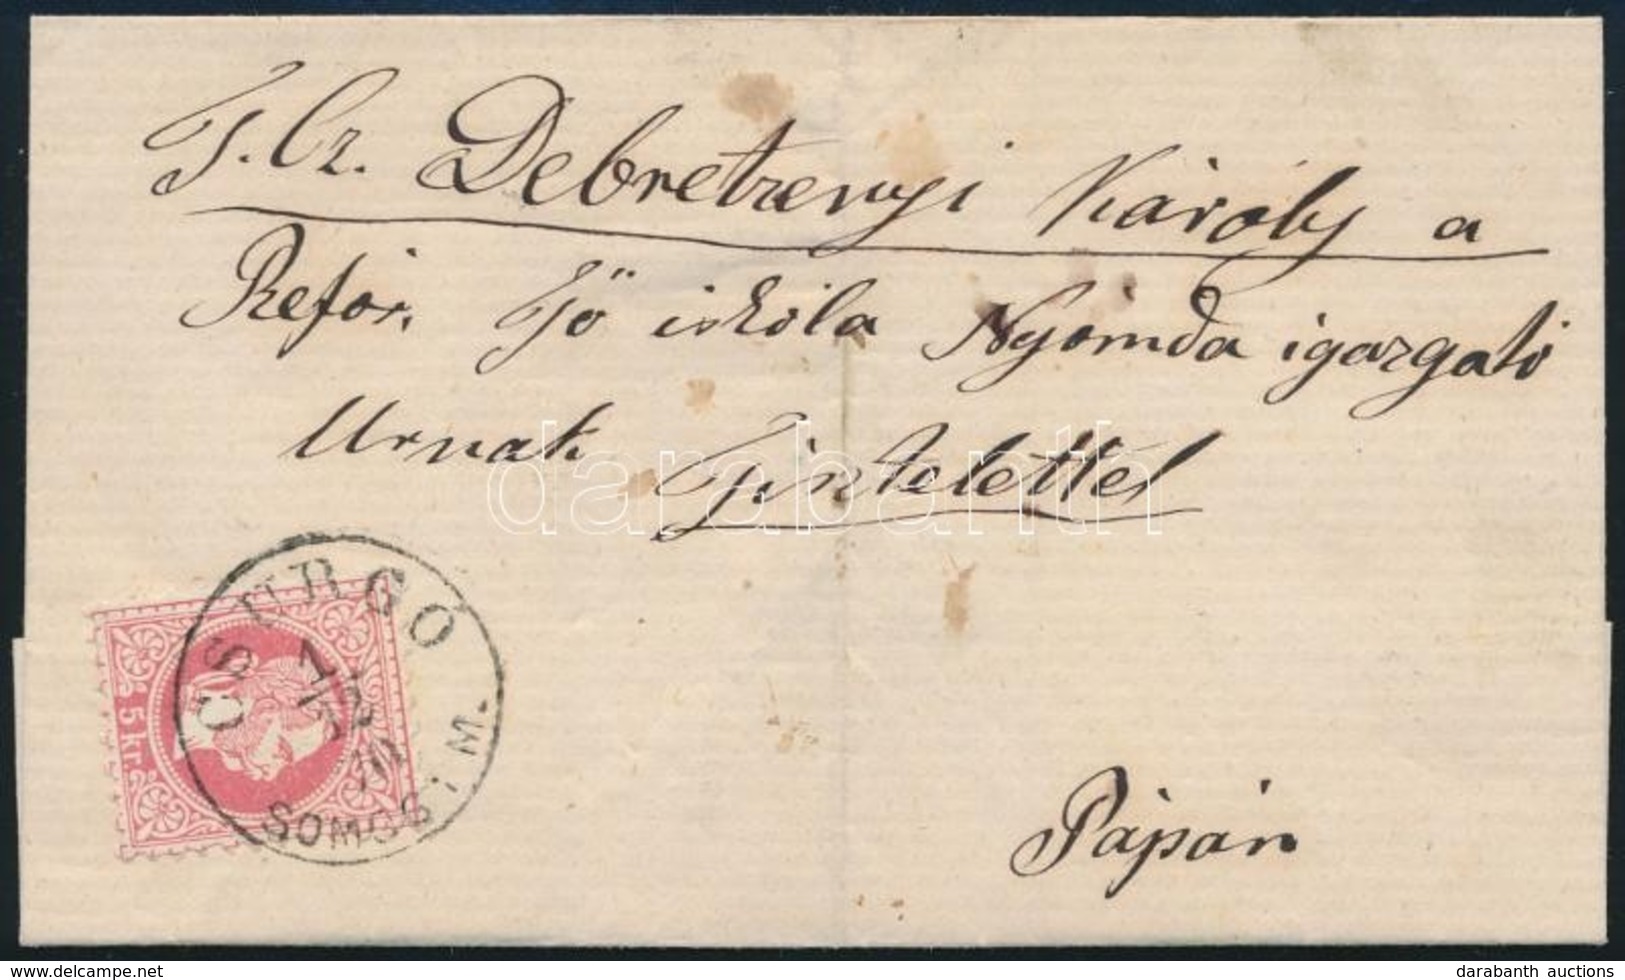 T. Cz. Debretzenyi Károly a
Refor. Fö iskóla Nyomda igazgató
Urnak Tisztelettel
Pápán
CSURGÓ
SOMOGY M.
5 kr.
darabanth
darabanth auctions